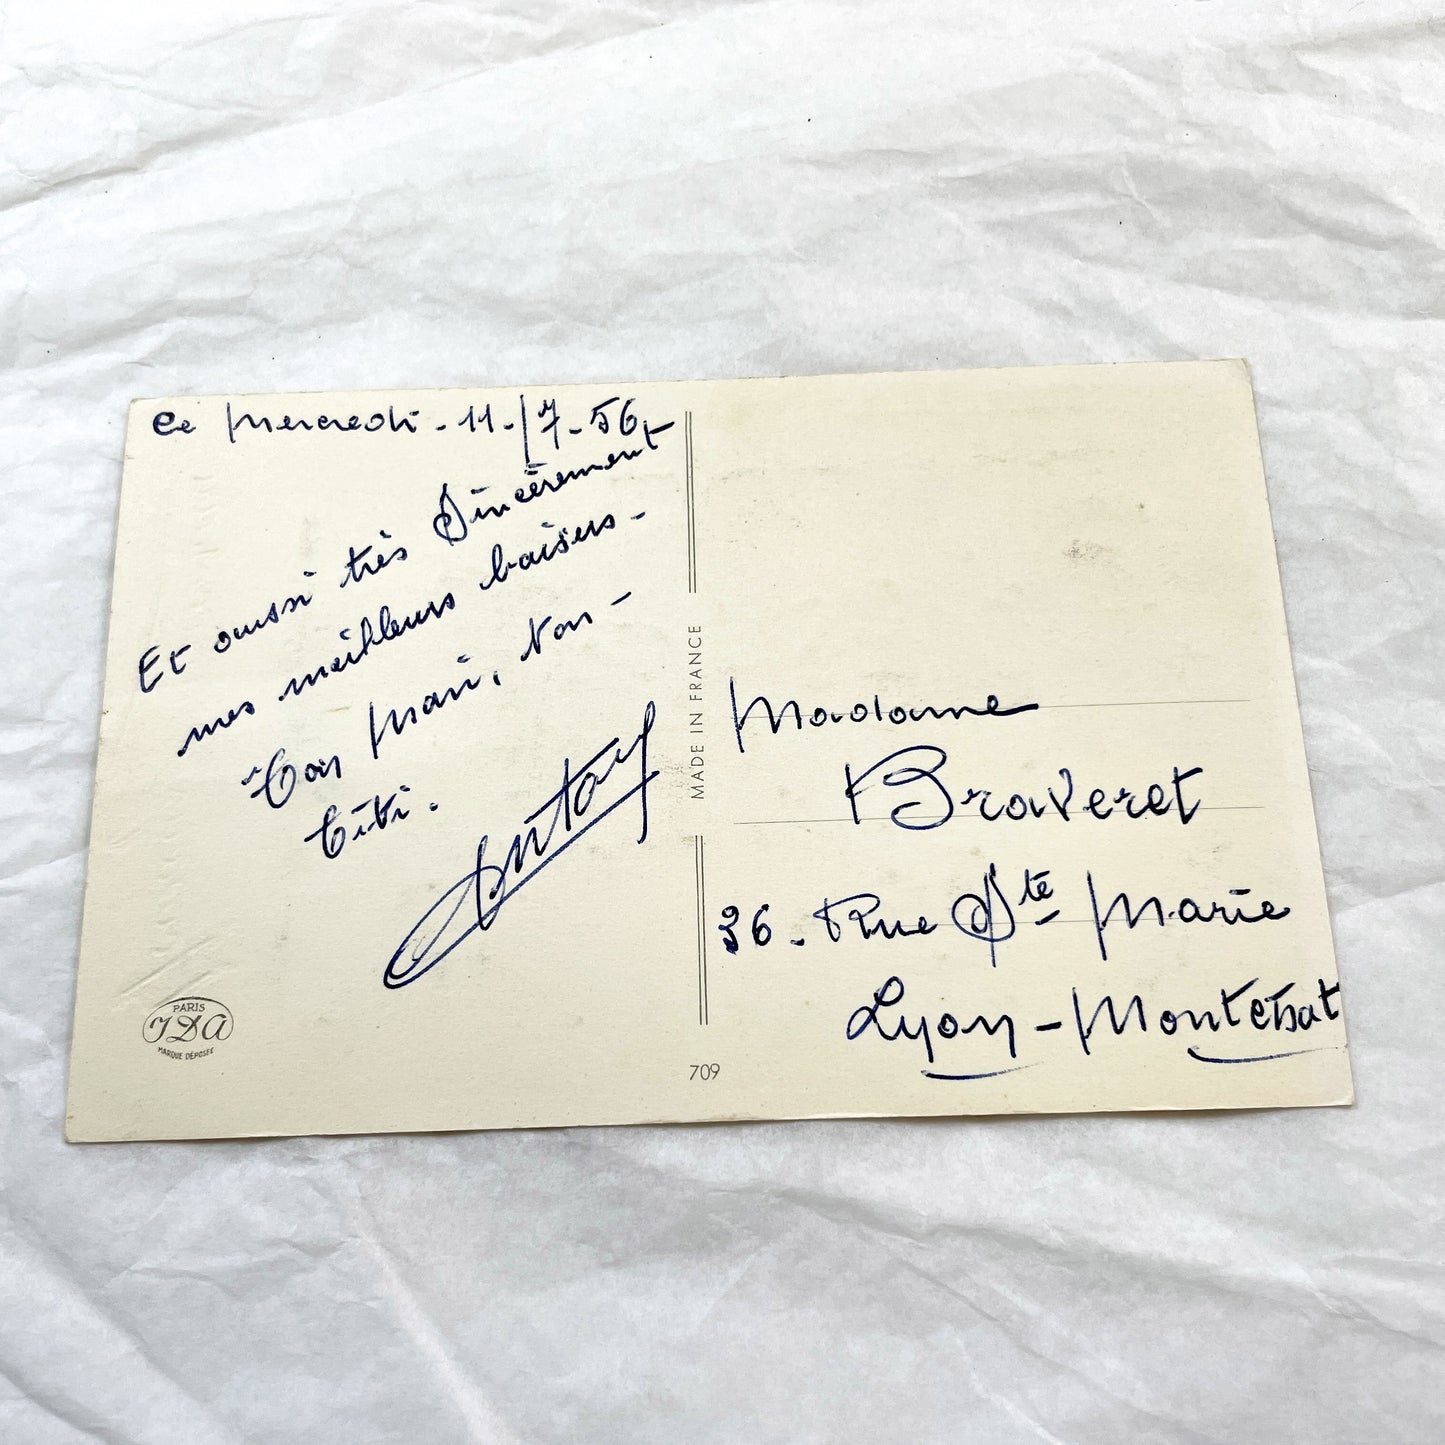 Ce Mercredi - 11-/7-56
Et aussi très Sincèrement
mes meilleurs baisers -
Ton Mari, ton -
titi.
Antony
PARIS
IDA
MARQUE DÉPOSÉE
MADE IN FRANCE
709
Madame
Braveret
36 - Rue Ste Marie
Lyon - Montchat